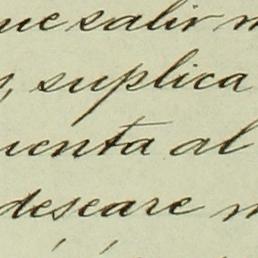 ue salir
, suplica
uenta al
deseare